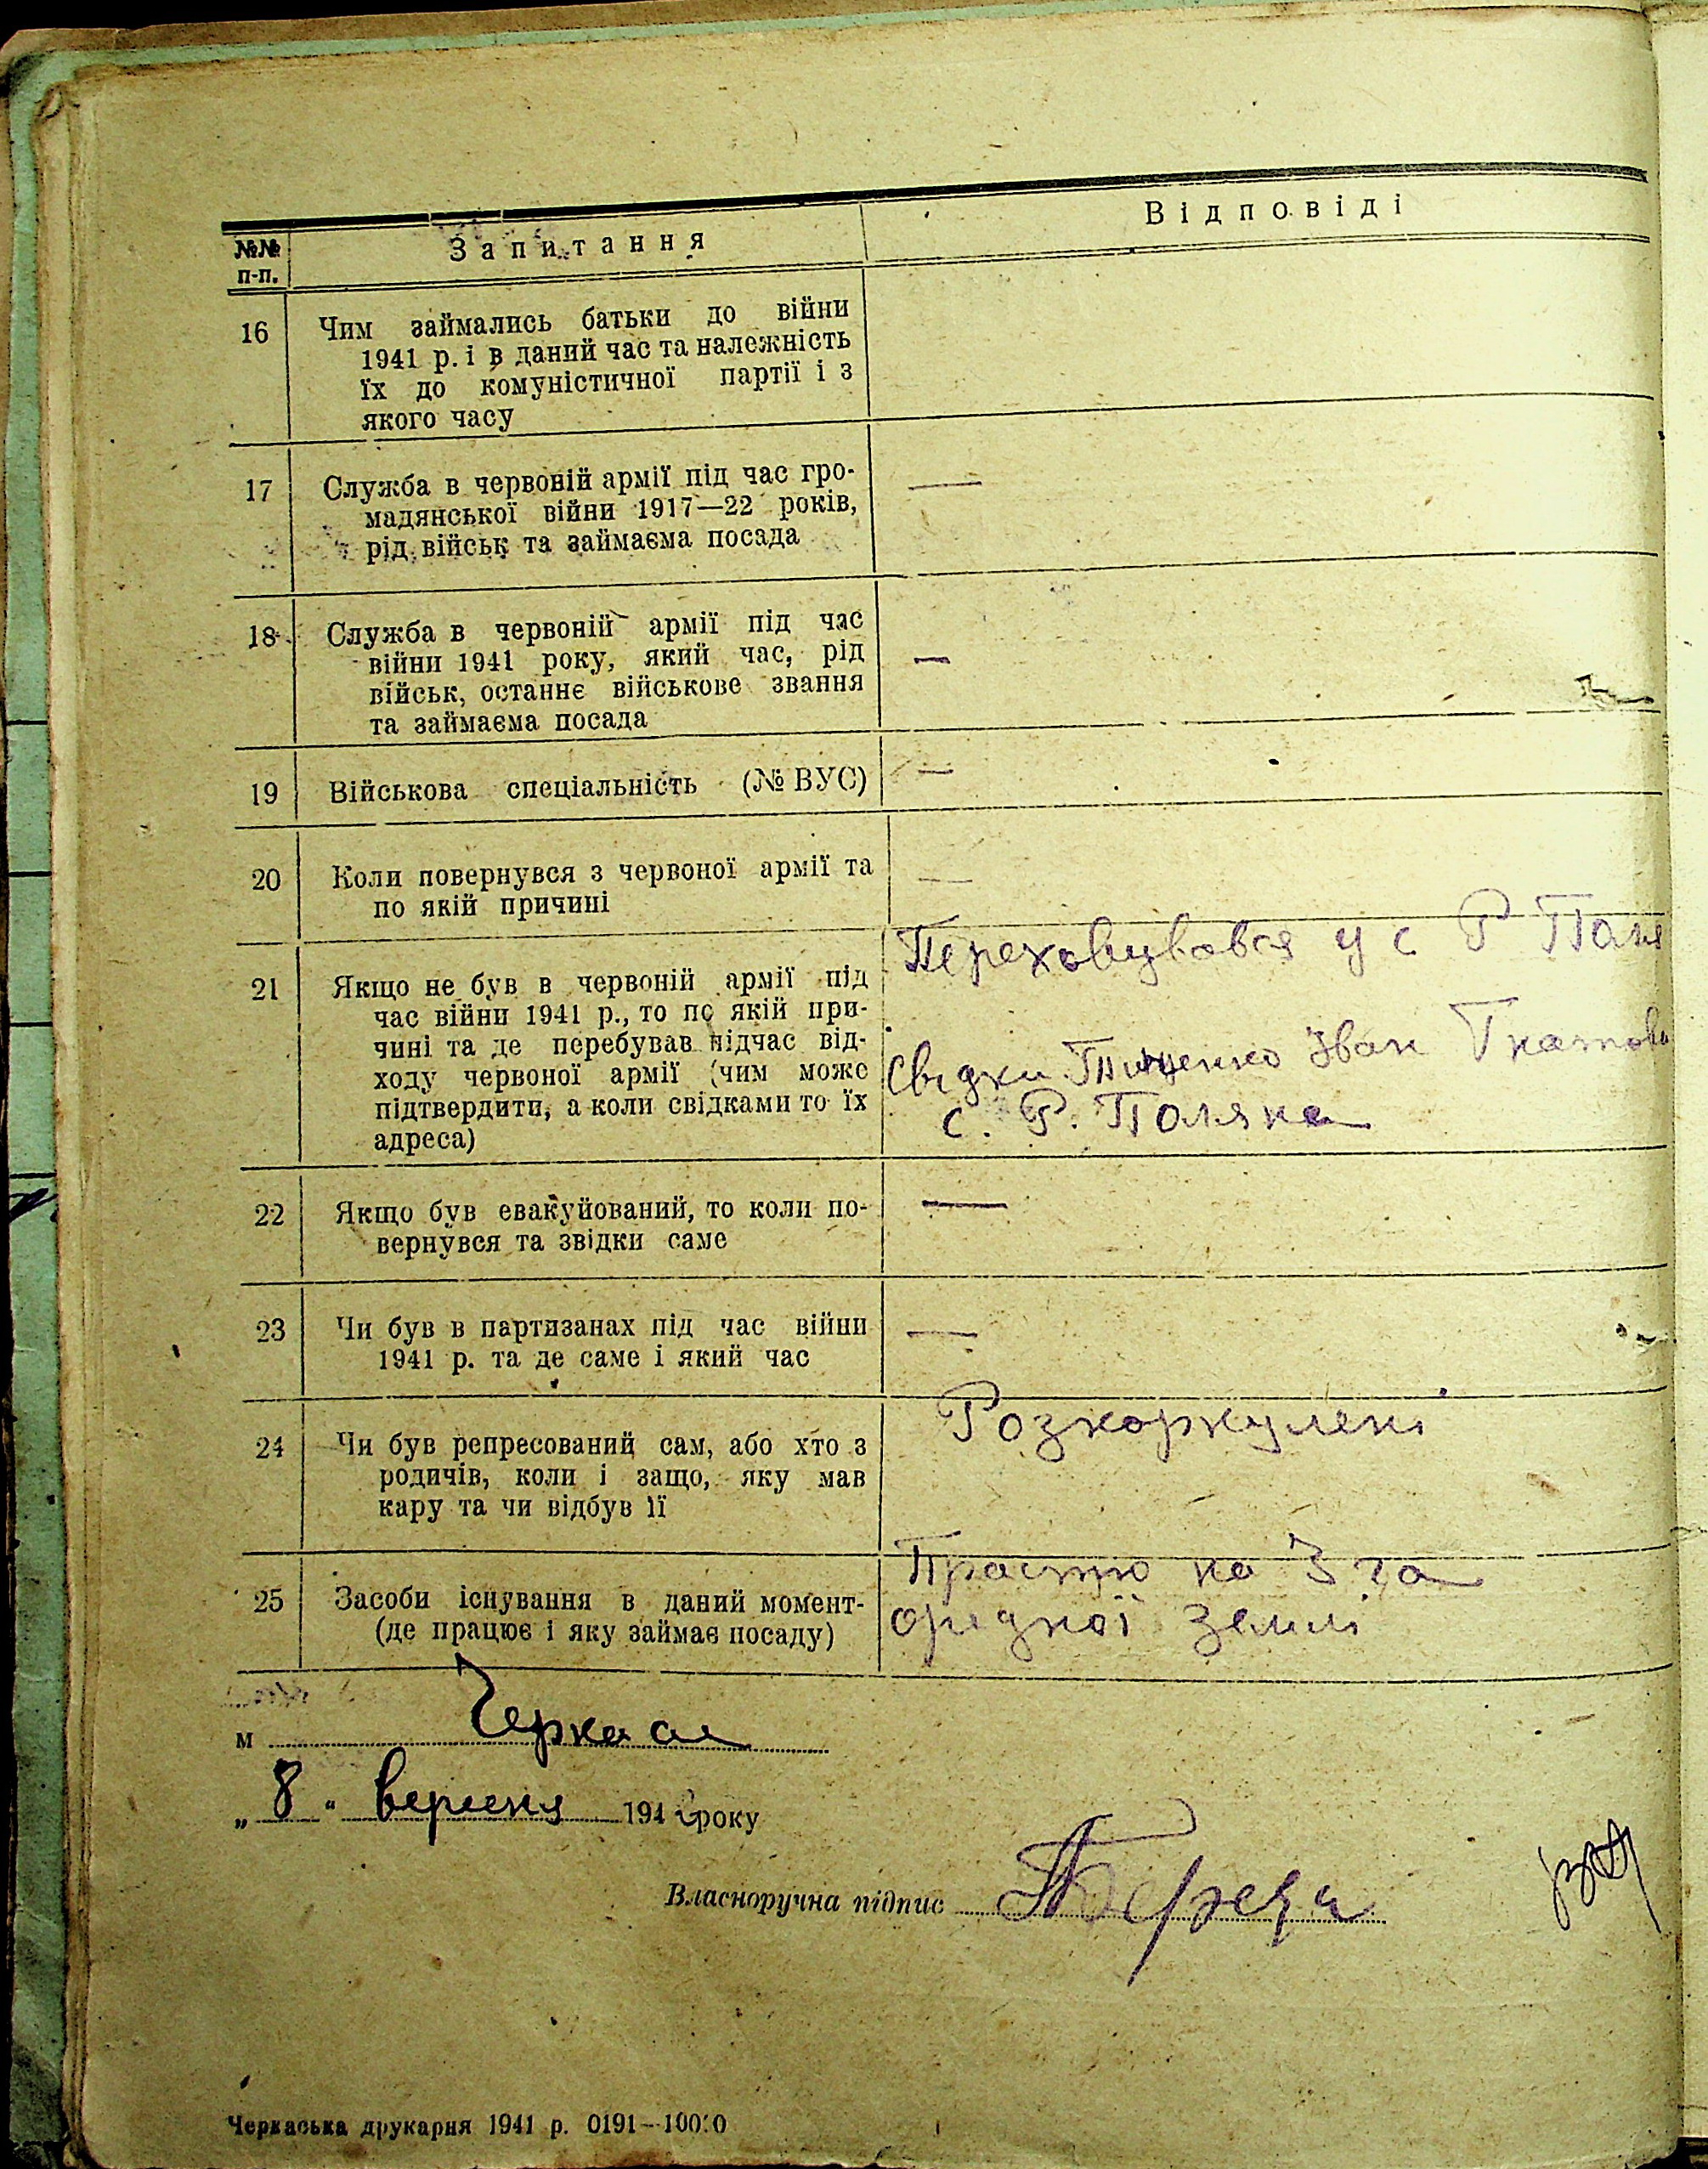 №№ п-п.
Запитання
Відповіді
16 Чим займались батьки до війни
1941 р. і в даний час та належність
їх до комуністичної партії і з
якого часу
17 Служба в червоній армії під час гро-
мадянської війни 1917—22 років,
рід військ та займаєма посада
—
18 Служба в червоній армії під час
війни 1941 року, який час, рід
військ, останнє військове звання
та займаєма посада
—
19 Військова спеціальність (№ ВУС)
—
20 Коли повернувся з червоної армії та
по якій причині
—
21 Якщо не був в червоній армії під
час війни 1941 р., то по якій при-
чині та де перебував підчас від-
ходу червоної армії (чим може
підтвердити, а коли свідками то їх
адреса)
Переховувався у с Р Поля
Свідки Тищенко Іван Гнатови
с. Р. Поляна
22 Якщо був евакуйований, то коли по-
вернувся та звідки саме
—
23 Чи був в партизанах під час війни
1941 р. та де саме і який час
—
24 Чи був репресований сам, або хто з
родичів, коли і защо, яку мав
кару та чи відбув її
Розкоркулені
25 Засоби існування в даний момент
(де працює і яку займає посаду)
Працюю на 3 га
орендної землі
м Черкаси
„8“ вересня 194 року
Власноручна підпис
Черкаська друкарня 1941 р. 0191—10000